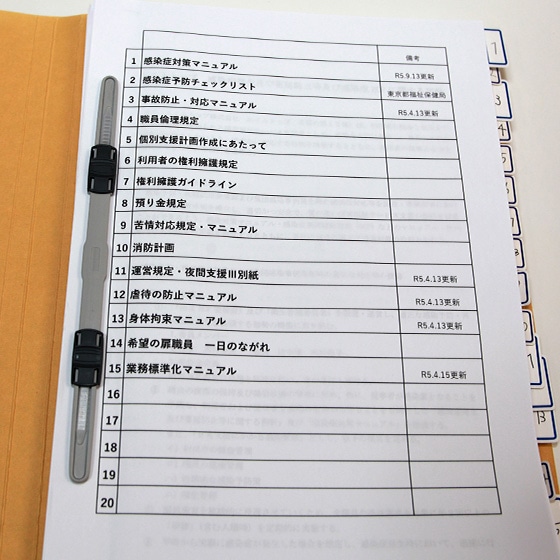 備考
1 感染症対策マニュアル R5.9.13更新
2 感染症予防チェックリスト 東京都福祉保健局
3 事故防止・対応マニュアル R5.4.13更新
4 職員倫理規定
5 個別支援計画作成にあたって
6 利用者の権利擁護規定
7 権利擁護ガイドライン
8 預り金規定
9 苦情対応規定・マニュアル
10 消防計画
11 運営規定・夜間支援Ⅲ別紙 R5.4.13更新
12 虐待の防止マニュアル R5.4.13更新
13 身体拘束マニュアル R5.4.13更新
14 希望の扉職員 一日のながれ
15 業務標準化マニュアル R5.4.15更新
16
17
18
19
20
1